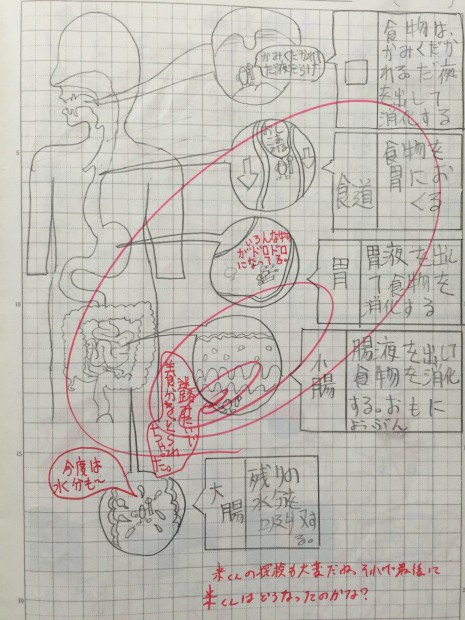 かみくだかれて
だ液だらけ
口
食物は、
かみくだか
れる。だ液
を出して
消化する
食道
食物を
胃にお
くる
いろんな物
がドロドロ
になってる。
胃
胃液を出し
て食物を
消化する
小腸
腸液を出して
食物を消化
する。おもに
ようぶん
迷路みたい
養分をとられ
ちゃった。
今度は
水分も~
大腸
残りの
水分を
吸収す
る。
米くんの探検も大変だね。それで最後に
米くんはどうなったのかな?
5
10
15
20